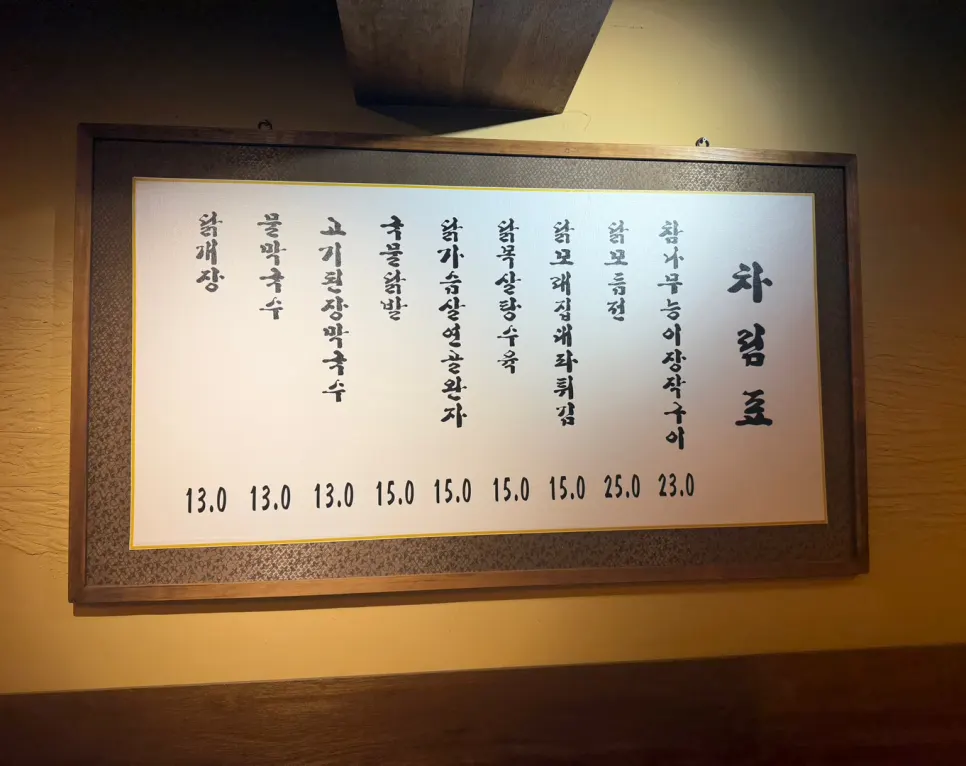 차림표
참나무능이장작구이 23.0
닭모듬전 25.0
닭모래집깨좌튀김 15.0
닭목살탕수육 15.0
닭가슴살연골완자 15.0
국물닭발 15.0
고기된장막국수 13.0
물막국수 13.0
닭개장 13.0